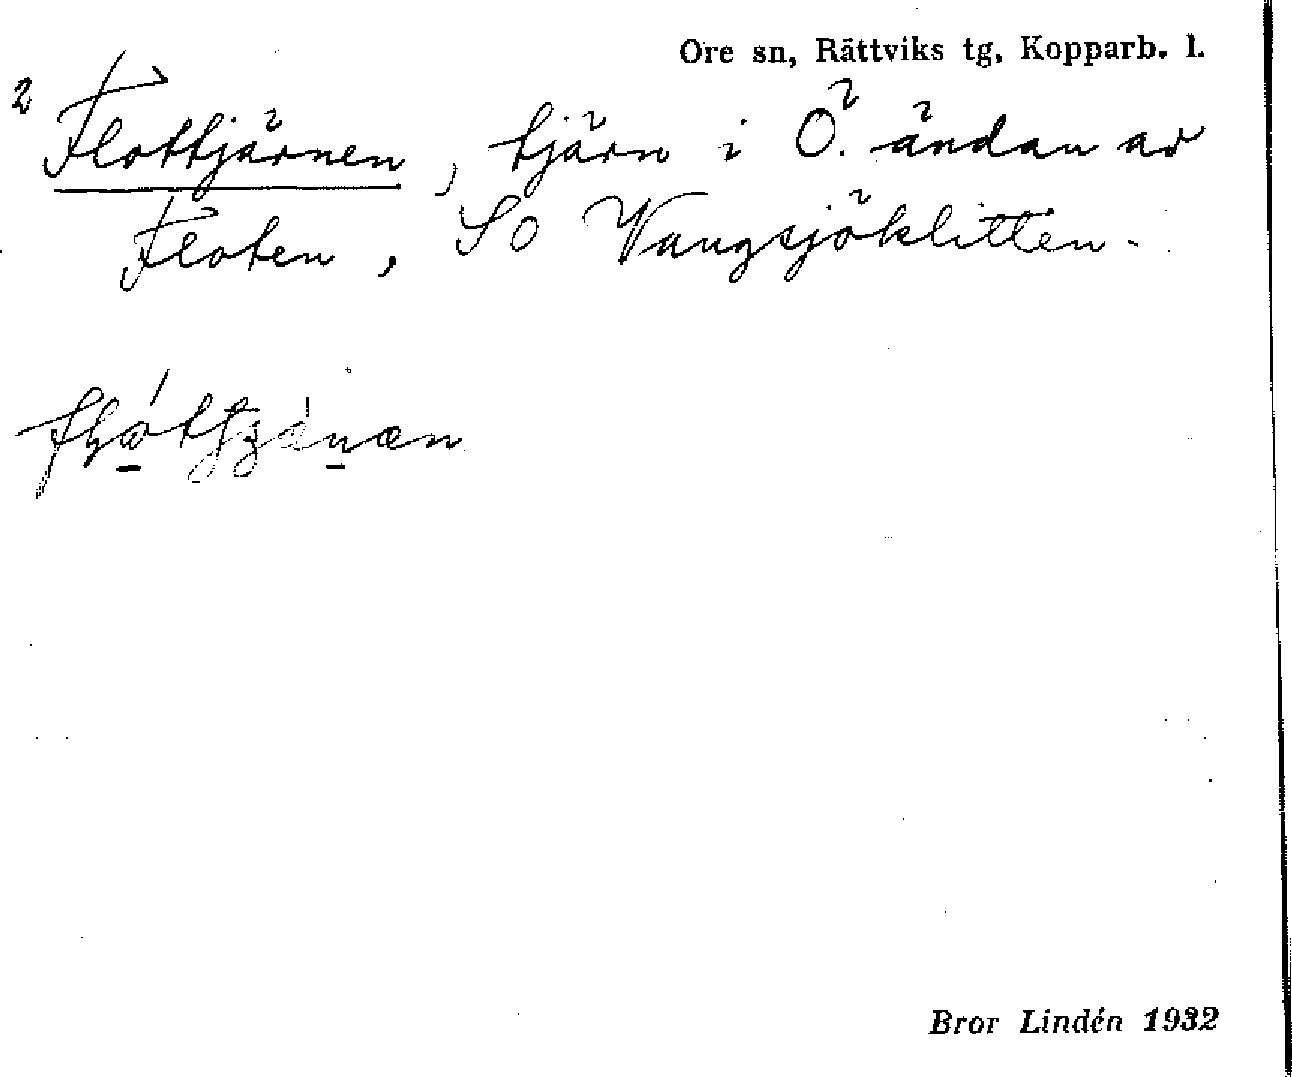 Ore sn, Rättviks tg, Kopparb. l.
2 Flottjärnen, tjärn i Ö. ändan av
Floten, SO Vangsjöklitten.
Bror Lindén 1932